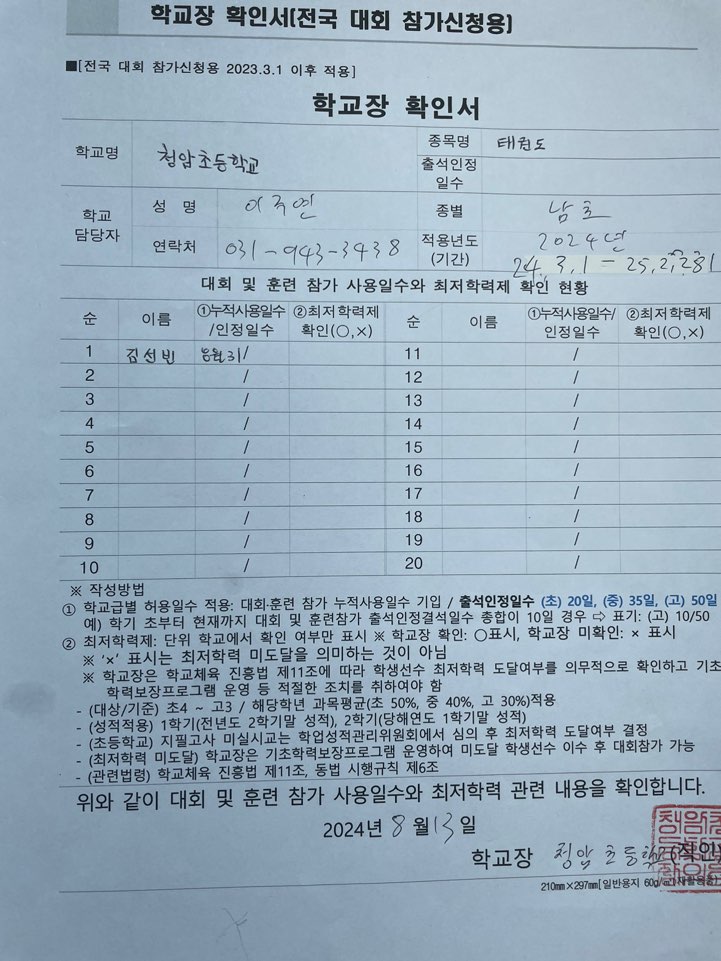 학교장 확인서(전국 대회 참가신청용)
■[전국 대회 참가신청용 2023.3.1 이후 적용]
학교장 확인서
학교명 청암초등학교 종목명 태권도
출석인정 일수
학교 담당자 성 명 이주연 종별 남초
연락처 031-943-3438 적용년도 (기간) 2024년
24.3.1 - 25.2.28
대회 및 훈련 참가 사용일수와 최저학력제 확인 현황
순 이름 ①누적사용일수/인정일수 ②최저학력제 확인(○,×) 순 이름 ①누적사용일수/인정일수 ②최저학력제 확인(○,×)
1 김선빈 / 11 /
2 / 12 /
3 / 13 /
4 / 14 /
5 / 15 /
6 / 16 /
7 / 17 /
8 / 18 /
9 / 19 /
10 / 20 /
※ 작성방법
① 학교급별 허용일수 적용: 대회·훈련 참가 누적사용일수 기입 / 출석인정일수 (초) 20일, (중) 35일, (고) 50일
예) 학기 초부터 현재까지 대회 및 훈련참가 출석인정결석일수 총합이 10일 경우 ⇨ 표기: (고) 10/50
② 최저학력제: 단위 학교에서 확인 여부만 표시 ※ 학교장 확인: ○표시, 학교장 미확인: × 표시
※ '×' 표시는 최저학력 미도달을 의미하는 것이 아님
※ 학교장은 학교체육 진흥법 제11조에 따라 학생선수 최저학력 도달여부를 의무적으로 확인하고 기초
학력보장프로그램 운영 등 적절한 조치를 취하여야 함
- (대상/기준) 초4 ~ 고3 / 해당학년 과목평균(초 50%, 중 40%, 고 30%)적용
- (성적적용) 1학기(전년도 2학기말 성적), 2학기(당해연도 1학기말 성적)
- (초등학교) 지필고사 미실시교는 학업성적관리위원회에서 심의 후 최저학력 도달여부 결정
- (최저학력 미도달) 학교장은 기초학력보장프로그램 운영하여 미도달 학생선수 이수 후 대회참가 가능
- (관련법령) 학교체육 진흥법 제11조, 동법 시행규칙 제6조
위와 같이 대회 및 훈련 참가 사용일수와 최저학력 관련 내용을 확인합니다.
2024년 8 월 13 일
학교장 청암 초등학교 (직인)
210㎜×297㎜[일반용지 60g/㎡(재활용품)]